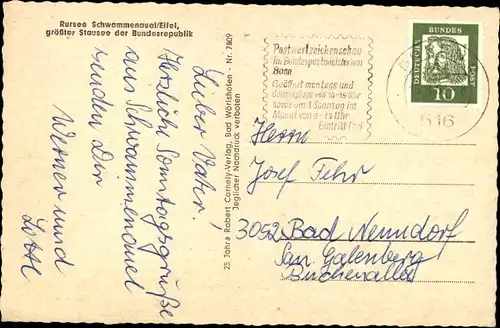 Rursee Schwammenauel/Eifel,
größter Stausee der Bundesrepublik
Lieber Vater!
Herzlich Sonntagsgrüße
aus Schwammenauel
senden Dir
Werner und
Lotte
25 Jahre Robert Cornely-Verlag, Bad Wörishofen - Nr. 7809
Jeglicher Nachdruck verboten
Postwertzeichenschau
im Bundespostministerium
Bonn
Geöffnet montags und
donnerstags von 16-19 Uhr
sowie am 1. Sonntag im
Monat von 9-13 Uhr
Eintritt frei
DEUTSCHE BUNDES POST
10
516
Herrn
Josef Fehr
3052 Bad Nenndorf
San. Galenberg
Buchenallee